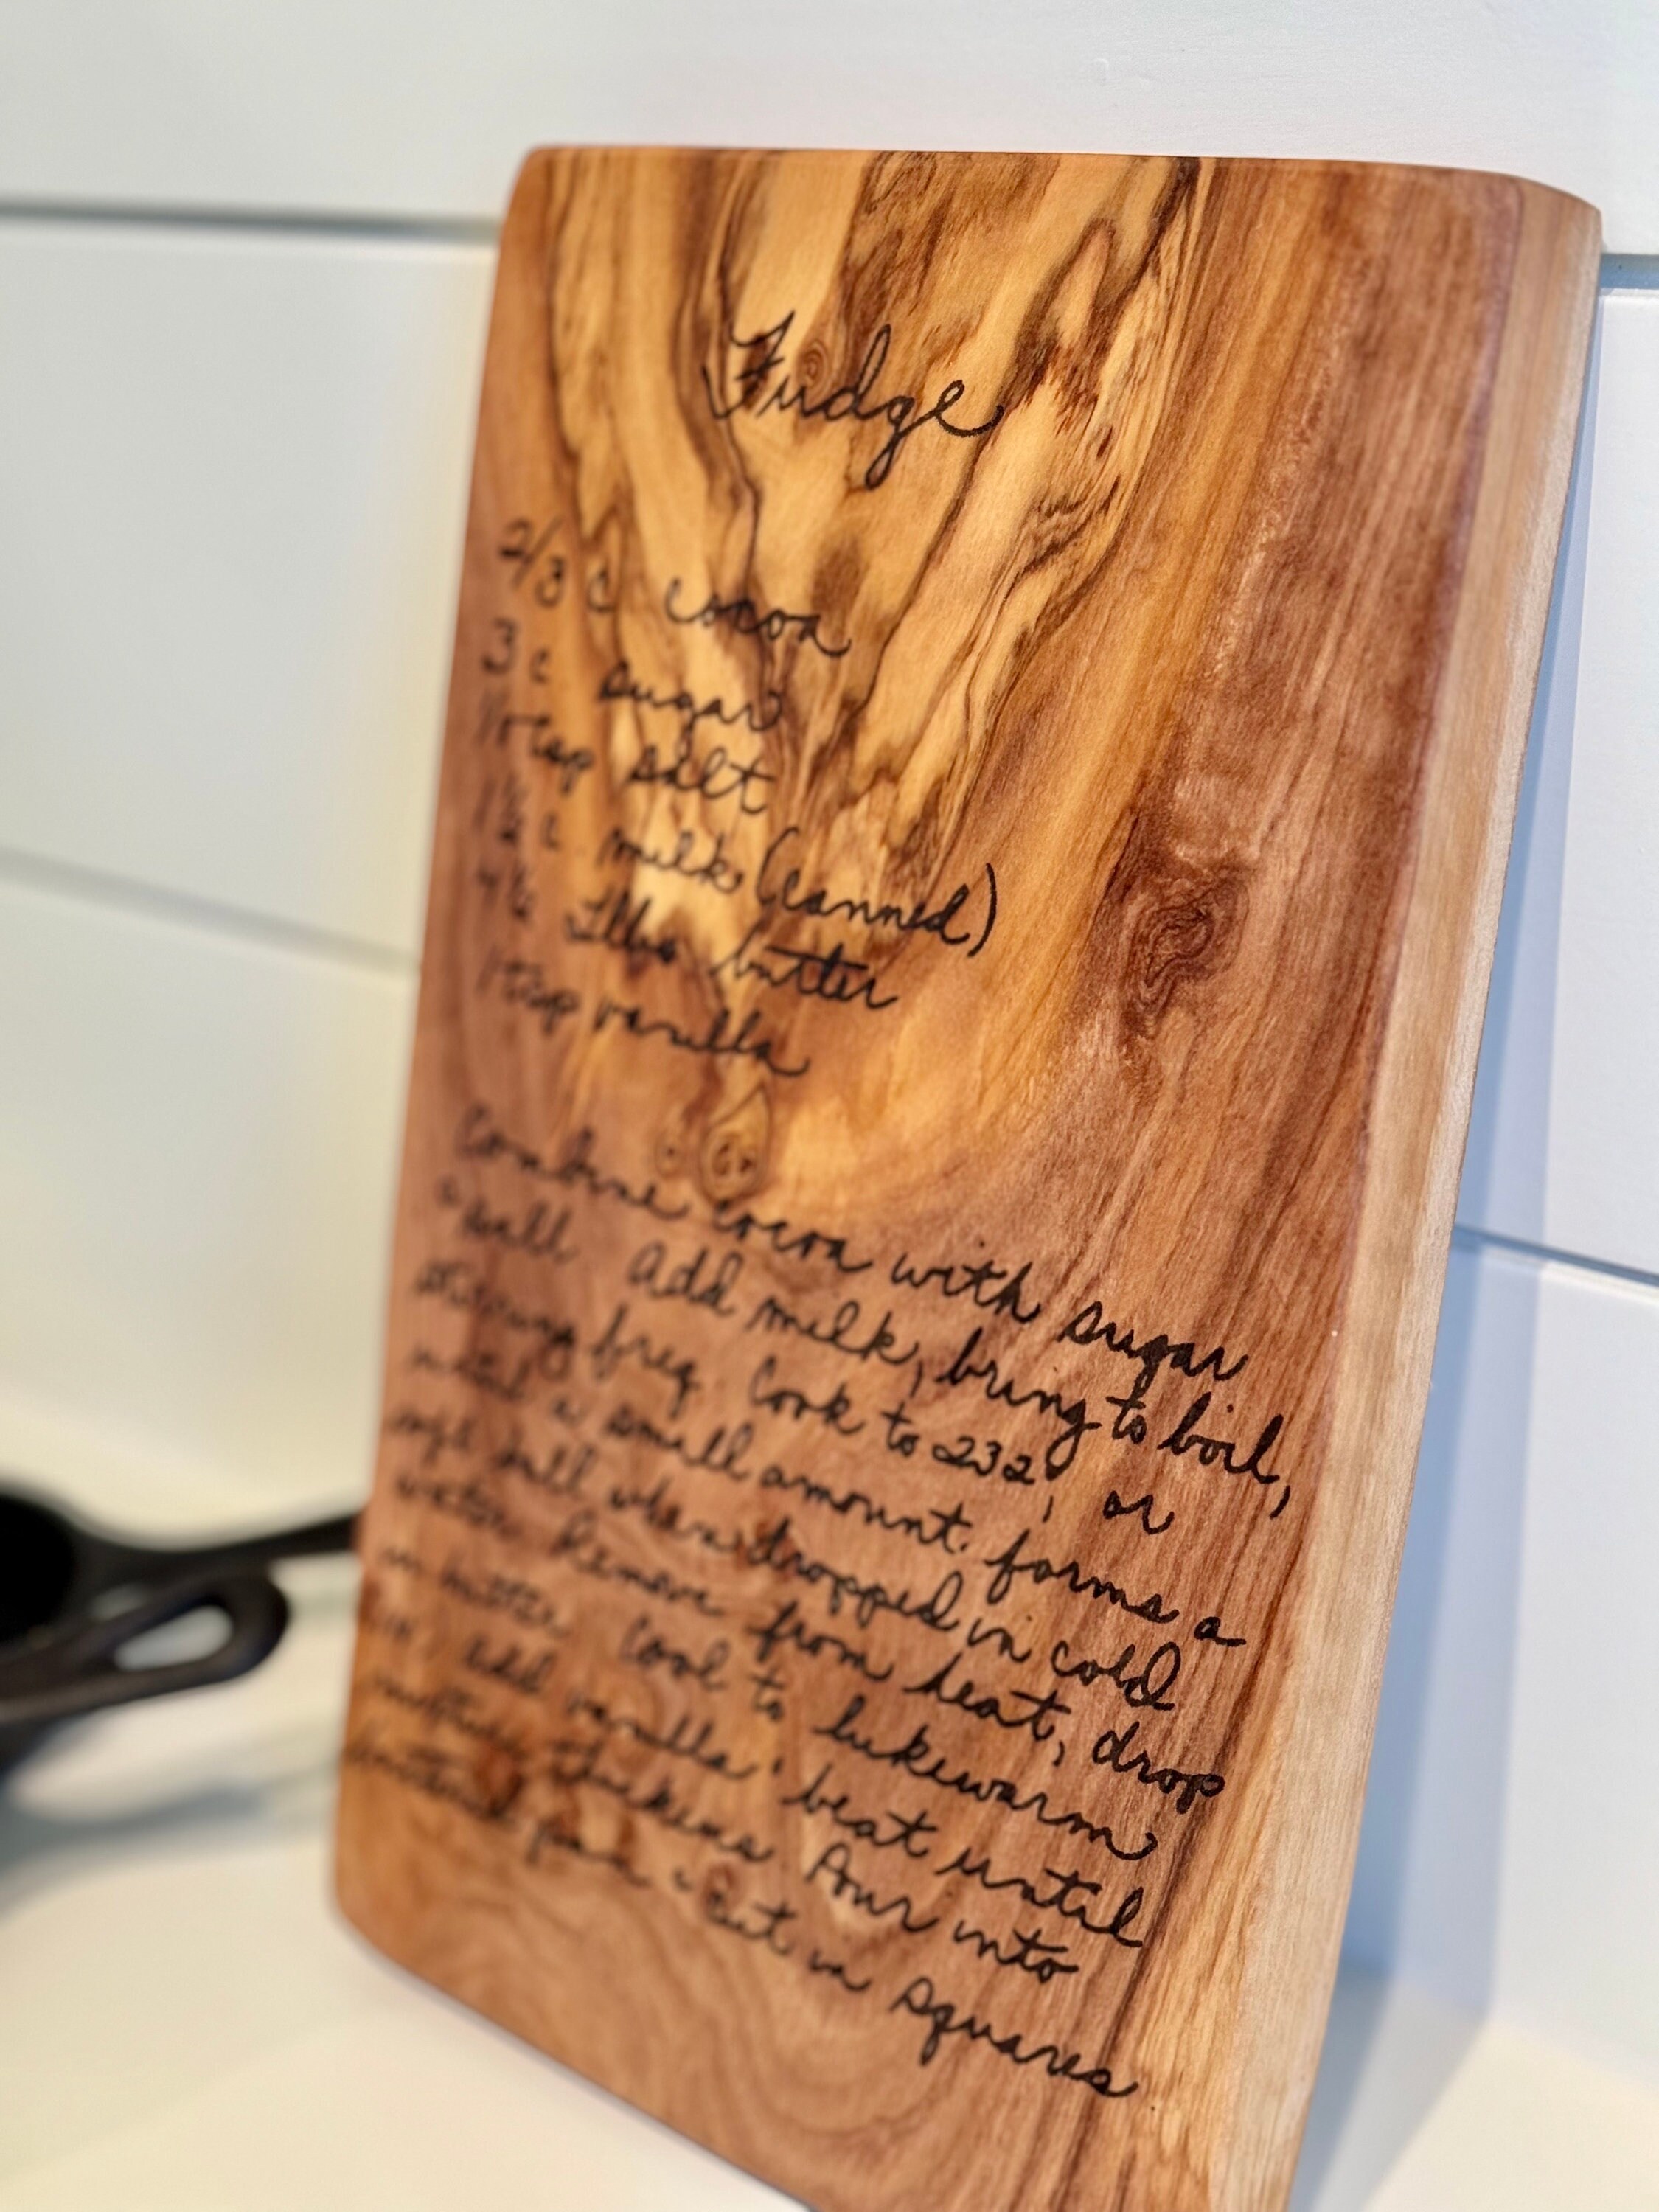 Fudge
2/3 c cocoa
3 c sugar
tsp salt
1 ½ c milk (canned)
4 ½ Tlbs butter
1 tsp vanilla
Combine cocoa with sugar
& salt Add milk, bring to boil,
stirring freq. Cook to 232°, or
until a small amount forms a
soft ball when dropped in cold
water. Remove from heat, drop
in butter. Cool to lukewarm
Add vanilla, beat until
mixture thickens Pour into
buttered pan & cut in squares